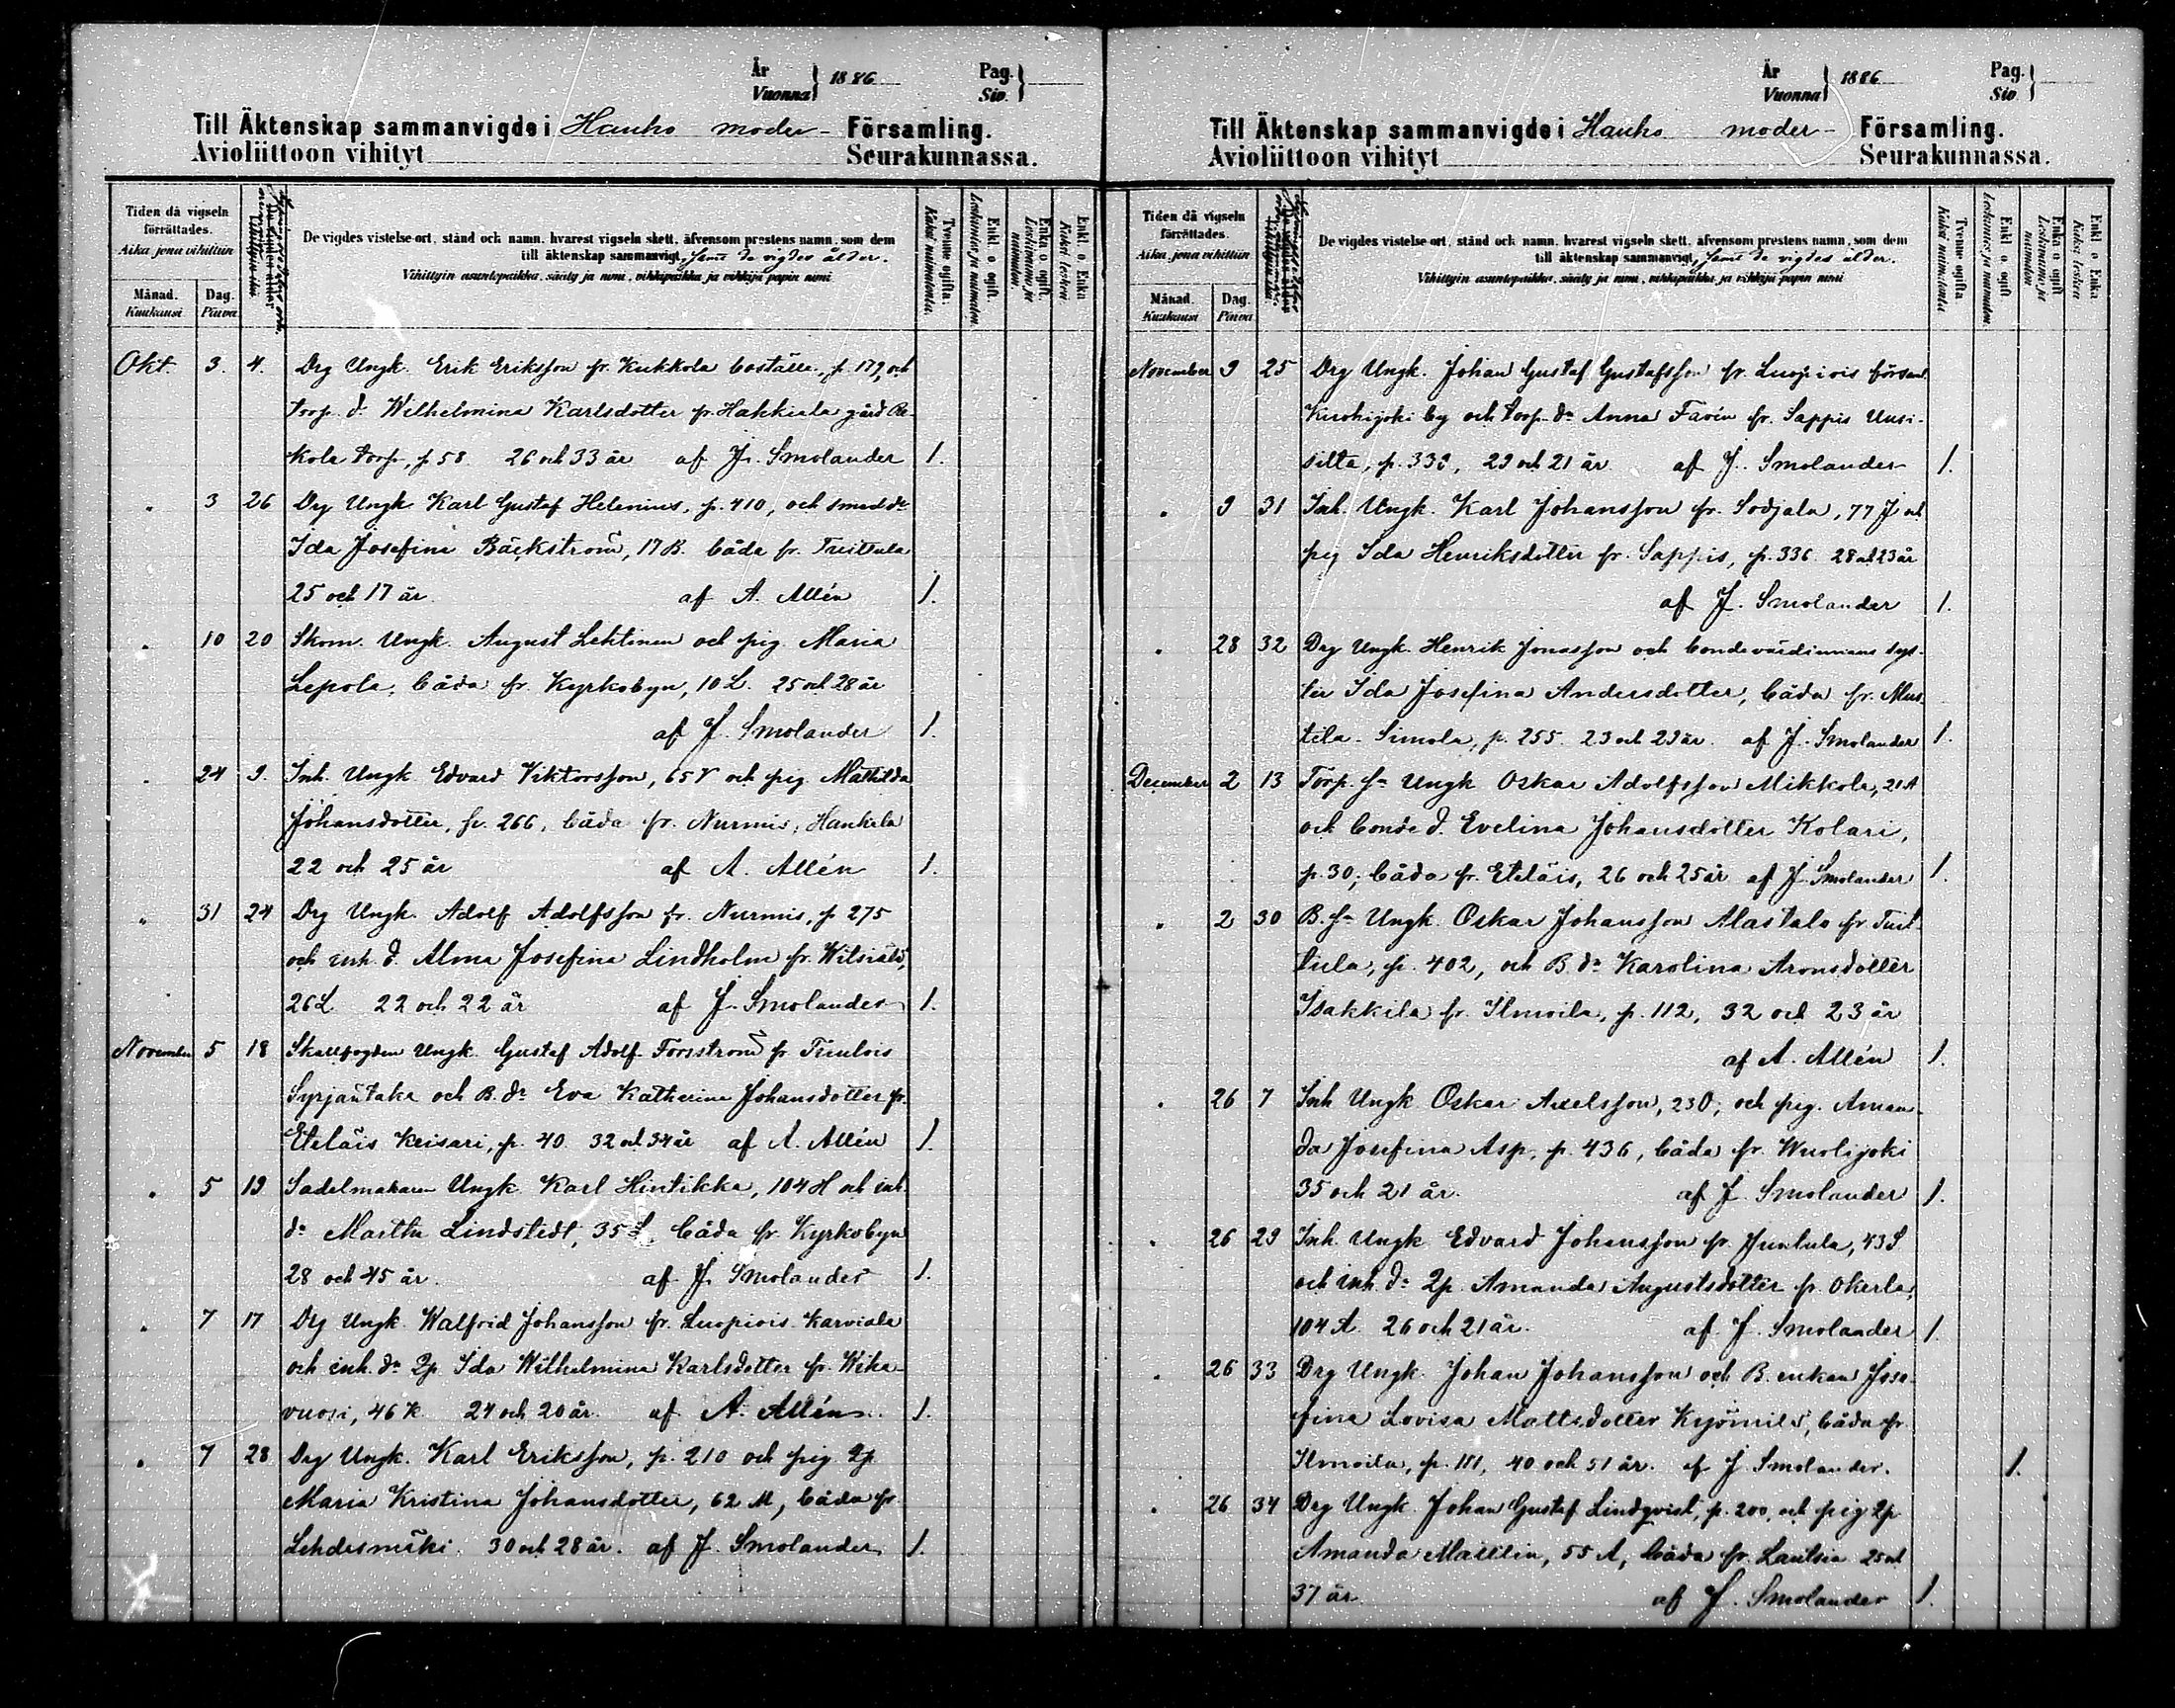 År
Vuonna } 1886
Pag.
Siv. }
Till Äktenskap sammanvigde i Hauho moder- Församling.
Avioliittoon vihityt Seurakunnassa.
Tiden då vigseln förrättades.
Aika, jona vihittiin
Månad. Kuukausi
Dag. Päivä
De vigdes vistelse-ort, stånd och namn, hvarest vigseln skett, äfvensom prestens namn, som dem
till äktenskap sammanvigt, samt de vigdes ålder.
Vihittyin asuntopaikka, sääty ja nimi, vihkipaikka ja vihkijä papin nimi
Tvenne ogifta. Kaksi naimatonta.
Enkl. o. ogift. Leskimies ja naimaton.
Enka o. ogift. Leskivaimo ja naimaton.
Enkl. o. Enka Kaksi leskeä.
Okt. 3. 4. Drg Ungk. Erik Eriksson fr. Kukkola boställe, p. 179, och
torp. d. Wilhelmina Karlsdotter fr. Hakkiala gård Re-
kola torp, p. 58. 26 och 33 år af J. Smolander 1.
" 3 26 Drg Ungk. Karl Gustaf Helenius, p. 410, och smed dr
Ida Josefina Bäckström, 17 B. båda fr. Tuittula
25 och 17 år af A. Allén 1.
" 10 20 Skom. Ungk. August Lehtinen och pig. Maria
Lepola, båda fr. Kyrkobyn, 10 L. 25 och 28 år
af J. Smolander 1.
" 24 9. Inh. Ungk. Edvard Viktorsson, 65 V och pig. Mathilda
Johansdotter, p. 266, båda fr. Nurmis, Hankala
22 och 25 år af A. Allén 1.
" 31 24 Drg Ungk. Adolf Adolfsson fr. Nurmis, p 275
och inh. d. Alma Josefina Lindholm fr. Wilsiala,
26 L 22 och 22 år af J. Smolander 1.
November 5 18 Skallfogden Ungk. Gustaf Adolf Forsström fr Tuulois
Syrjäntaka och B. dr Eva Katherina Johansdotter fr.
Eteläis Keisari, p. 40. 32 och 34 år af A. Allén 1.
" 5 19 Sadelmakaren Ungk. Karl Hintikka, 104 H och inh.
dr Martha Lindstedt, 35 L, båda fr. Kyrkobyn
28 och 45 år. af J. Smolander 1.
" 7 17 Drg Ungk. Walfrid Johansson fr. Luopiois Karviala
och inh. dr Qp. Ida Wilhelmina Karlsdotter fr. Wika-
vuosi, 46 K. 24 och 20 år. af A. Allén. 1.
" 7 28 Drg Ungk. Karl Eriksson, p. 210 och pig Qp
Maria Kristina Johansdotter, 62 M, båda fr.
Lehdesmäki. 30 och 28 år. af J. Smolander 1.
År
Vuonna } 1886
Pag.
Siv. }
Till Äktenskap sammanvigde i Hauho moder- Församling.
Avioliittoon vihityt Seurakunnassa.
Tiden då vigseln förrättades.
Aika, jona vihittiin
Månad. Kuukausi
Dag. Päivä
De vigdes vistelse-ort, stånd och namn, hvarest vigseln skett, äfvensom prestens namn, som dem
till äktenskap sammanvigt, samt de vigdes ålder.
Vihittyin asuntopaikka, sääty ja nimi, vihkipaikka ja vihkijä papin nimi
Tvenne ogifta Kaksi naimatonta
Enkl. o. ogift Leskimies ja naimaton.
Enka o. ogift Leskivaimo ja naimaton
Enkl o Enka Kaksi leskeä
November 9 25 Drg Ungk. Johan Gustaf Gustafsson fr. Luopiois församl.
Kuohijoki by och torp. dr Anna Favén fr. Sappis Uusi-
silta, p. 333, 29 och 21 år. af J. Smolander 1.
" 9 31 Inh. Ungk. Karl Johansson fr. Sodjala, 77 J och
pig Ida Henriksdotter fr. Sappis, p. 336. 28 och 23 år
af J. Smolander 1.
" 28 32 Drg Ungk. Henrik Jonasson och bondevärdinnans sys-
ter Ida Josefina Andersdotter, båda fr. Mus-
tila-Simola, p. 255. 23 och 29 år. af J. Smolander 1.
December 2 13 Torp. sn Ungk Oskar Adolfsson Mikkola, 21 A
och bonde d. Evelina Johansdotter Kolari,
p. 30; båda fr. Eteläis, 26 och 25 år af J. Smolander 1.
" 2 30 B. sn Ungk. Oskar Johansson Alastalo fr. Tuit-
tula, p. 402, och B. dr Karolina Aronsdotter
Isakkila fr. Ilmoila, p. 112, 32 och 23 år
af A. Allén 1.
" 26 7 Inh Ungk Oskar Axelsson, 23 O; och pig. Aman-
da Josefina Asp, p. 436, båda fr. Wuolijoki
35 och 21 år. af J. Smolander 1.
" 26 29 Inh. Ungk Edvard Johansson fr. Juntula, 43 S
och inh. dr Qp. Amanda Augustsdotter fr. Okerla,
104 A. 26 och 21 år. af J. Smolander 1.
" 26 33 Drg Ungk. Johan Johansson och B. enkan Jose-
fina Lovisa Mattsdotter Kyömilä, båda fr.
Ilmoila, p. 111, 40 och 51 år. af J Smolander. 1.
" 26 34 Drg Ungk. Johan Gustaf Lindqvist, p. 200, och pig Qp
Amanda Mattlin, 55 A, båda fr. Lautsia 25 och
37 år. af J. Smolander 1.